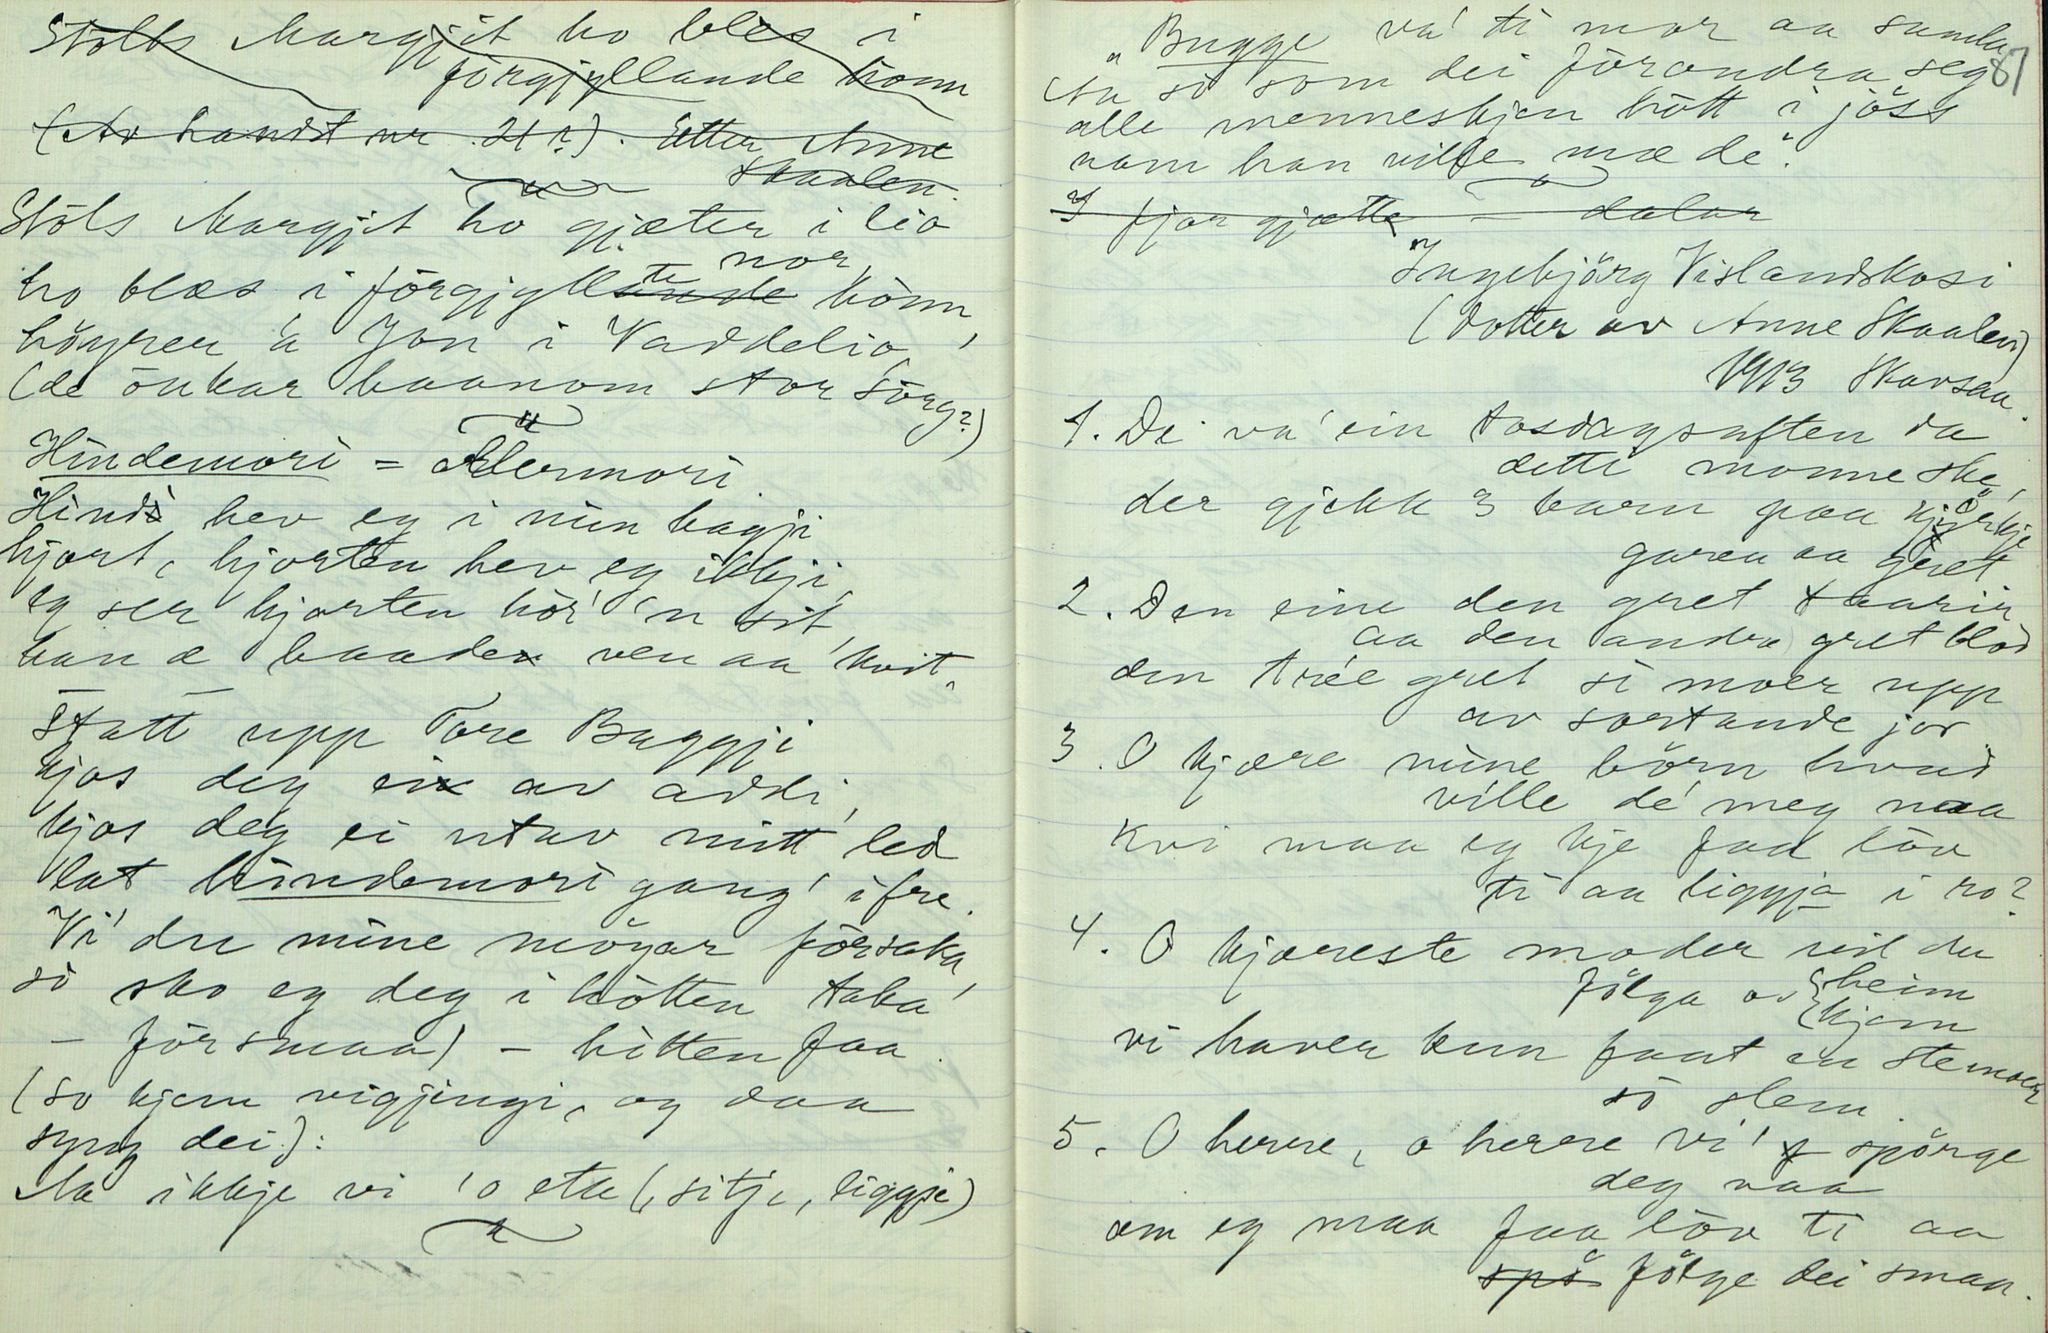 Stolts Margjit ho bles i
förgjyllande honn
(Av handst nr 21?). Etter Anne
Skaalen.
Stöls Margjit ho gjæter i lio
nor
ho blæs i förgjyllande te hönn,
höyrer 'a Jon i Vaddelio,
(de önkar haanom stor sörg?)
Hindemori = Ellermori.
Hindi hev eg i min hagji
hjort, hjorten hev eg ikkji,
eg ser hjorten hör 'n sit,
han æ baade ven aa kvit.
Statt upp Tore Buggji
kjos deg ei av addi,
kjos deg ei utav mitt led
lat hindemori gang' ifre.
Vi' du mine möyar försaka,
so sko eg deg i hötten taka
- försmaa) - hötten faa.
(so kjem vigjingi, og daa
syng dei):
Aa ikkje vi 'o eta (, sitje, liggje)
87
"Bugge va' ti mor aa samla
Aa so som dei förandra seg
alle menneskjen hott i jöss
nam han ville mæ de".
I fjor gjætte - dalar
Ingebjörg Vislandskosi
(dotter av Anne Skaalen)
1913 Skarsaa.
1. De va' ein tosdagsaften da
detti monne ske,
der gjekk 3 barn paa kjörkje
garen aa gret
2. Den eine den gret taarir
aa den andra gret blod
den tri'e gret si moer upp
av sortande jor
3. O kjære mine börn hvad
ville de' meg naa
Kvi maa eg kje faa löv
ti aa liggja i ro?
4. O kjæreste moder vil du
fölga os heim
hjem
vi haver kun faat en stemoer
so slem.
5. O herre, o herre vi' spörge
deg naa
om eg maa faa löv ti aa
spö fölge dei smaa.